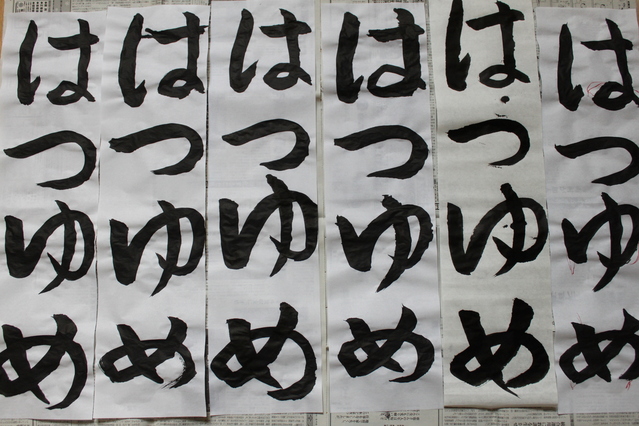 はつゆめ
はつゆめ
はつゆめ
はつゆめ
はつゆめ
はつゆめ